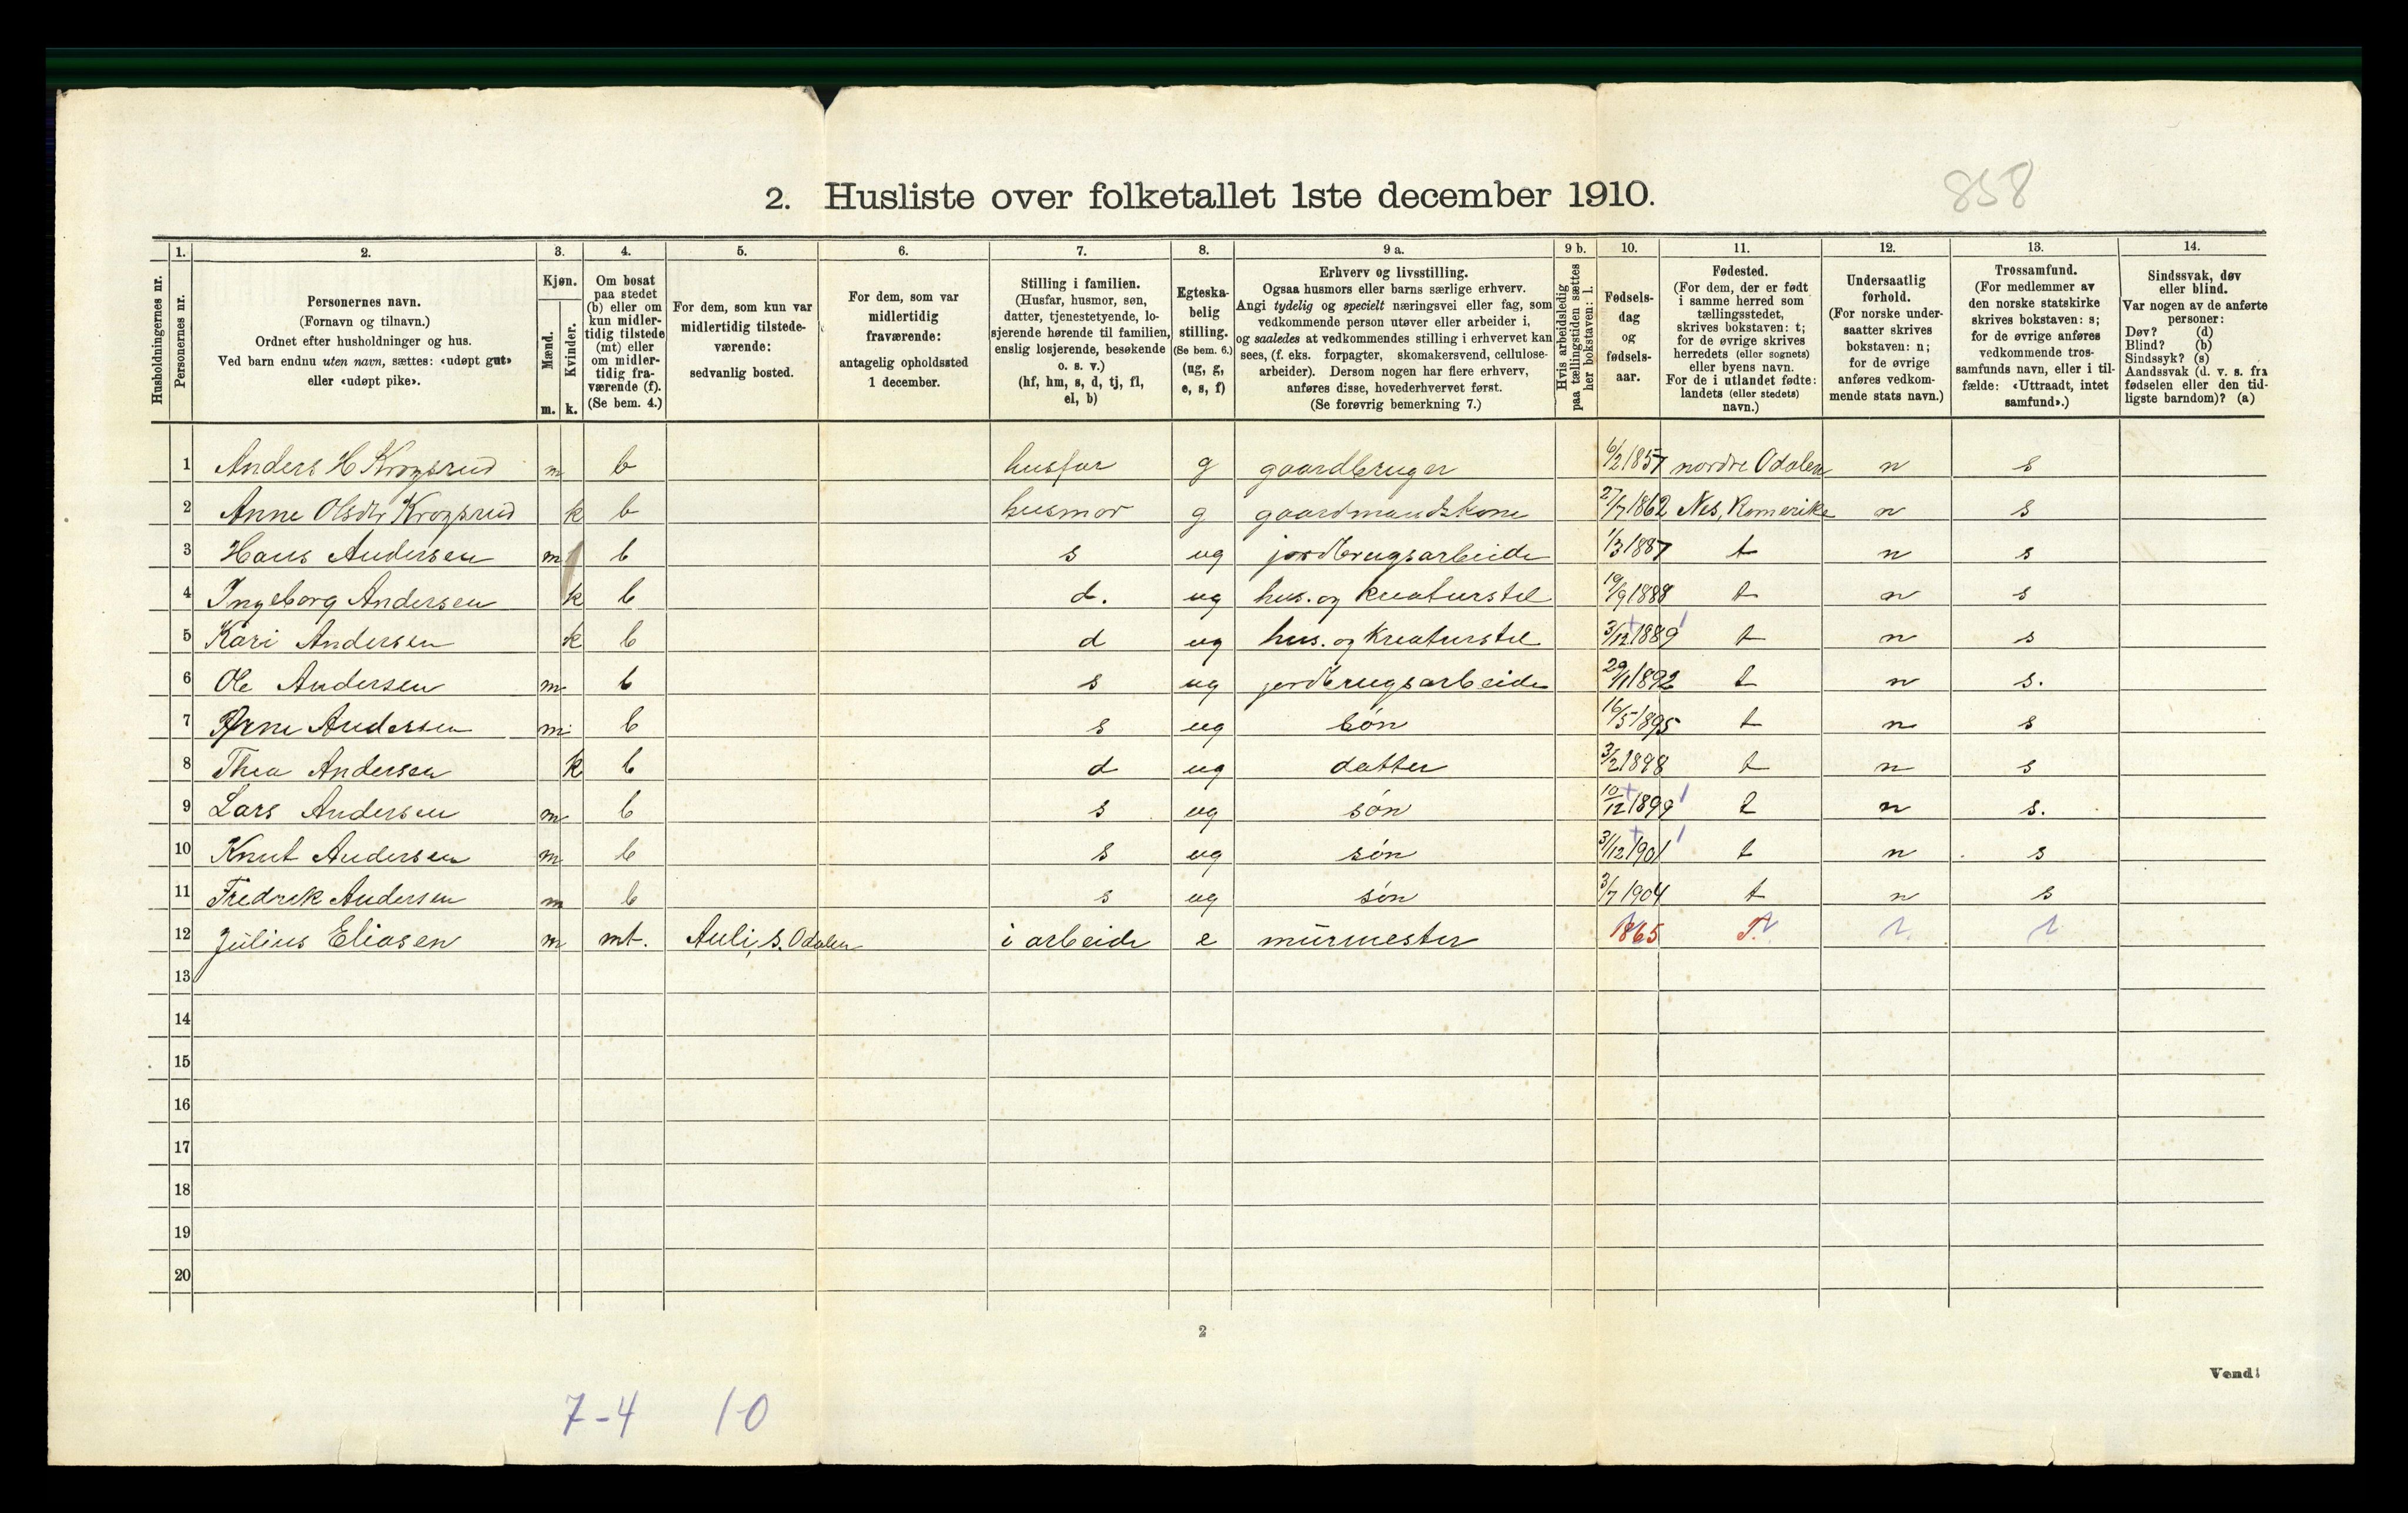 858
2. Husliste over folketallet 1ste december 1910.
1. 2. 3. 4. 5. 6. 7. 8. 9 a. 9 b. 10. 11. 12. 13. 14.
Husholdningernes nr.
Personernes nr.
Personernes navn.
(Fornavn og tilnavn.)
Ordnet efter husholdninger og hus.
Ved barn endnu uten navn, sættes: «udøpt gut»
eller «udøpt pike».
Kjøn.
Mænd.
Kvinder.
m. k.
Om bosat
paa stedet
(b) eller om
kun midler-
tidig tilstede
(mt) eller
om midler-
tidig fra-
værende (f).
(Se bem. 4.)
For dem, som kun var
midlertidig tilstede-
værende:
sedvanlig bosted.
For dem, som var
midlertidig
fraværende:
antagelig opholdssted
1 december.
Stilling i familien.
(Husfar, husmor, søn,
datter, tjenestetyende, lo-
sjerende hørende til familien,
enslig losjerende, besøkende
o. s. v.)
(hf, hm, s, d, tj, fl,
el, b)
Egteska-
belig
stilling.
(Se bem. 6.)
(ug, g,
e, s, f)
Erhverv og livsstilling.
Ogsaa husmors eller barns særlige erhverv.
Angi tydelig og specielt næringsvei eller fag, som
vedkommende person utøver eller arbeider i,
og saaledes at vedkommendes stilling i erhvervet kan
sees, (f. eks. forpagter, skomakersvend, cellulose-
arbeider). Dersom nogen har flere erhverv,
anføres disse, hovederhvervet først.
(Se forøvrig bemerkning 7.)
Hvis arbeidsledig
paa tællingstiden sættes
her bokstaven: l.
Fødsels-
dag
og
fødsels-
aar.
Fødested.
(For dem, der er født
i samme herred som
tællingsstedet,
skrives bokstaven: t;
for de øvrige skrives
herredets (eller sognets)
eller byens navn.
For de i utlandet fødte:
landets (eller stedets)
navn.)
Undersaatlig
forhold.
(For norske under-
saatter skrives
bokstaven: n;
for de øvrige
anføres vedkom-
mende stats navn.)
Trossamfund.
(For medlemmer av
den norske statskirke
skrives bokstaven: s;
for de øvrige anføres
vedkommende tros-
samfunds navn, eller i til-
fælde: «Uttraadt, intet
samfund».)
Sindssvak, døv
eller blind.
Var nogen av de anførte
personer:
Døv? (d)
Blind? (b)
Sindssyk? (s)
Aandssvak (d. v. s. fra
fødselen eller den tid-
ligste barndom)? (a)
1 Anders H Krogsrud m b husfar g gaardbruger 6/2 1857 nordre Odalen n s
2 Anne Olsdtr Krogsrud k b husmor g gaardmandskone 27/7 1862 Nes, Romerike n s
3 Hans Andersen m b s ug jordbrugsarbeide 1/3 1887 t n s
4 Ingeborg Andersen k b d. ug hus. og kreaturstel 19/9 1888 t n s
5 Kari Andersen k b d ug hus. og kreaturstel 3/12 1889 t n s
6 Ole Andersen m b s ug jordbrugsarbeide 29/11 1892 t n s.
7 Arne Andersen m b s ug søn 16/5 1895 t n s
8 Thea Andersen k b d ug datter 3/2 1898 t n s
9 Lars Andersen m b s ug søn 10/12 1899 t n s.
10 Knut Andersen m b s ug søn 31/12 1901 t n s
11 Fredrik Andersen m b s ug søn 3/7 1904 t n s
12 Julius Eliasen m mt. Auli, S. Odalen i arbeide e mürmester 1865 T.
13
14
15
16
17
18
19
20
2
Vend!
7-4 1-0